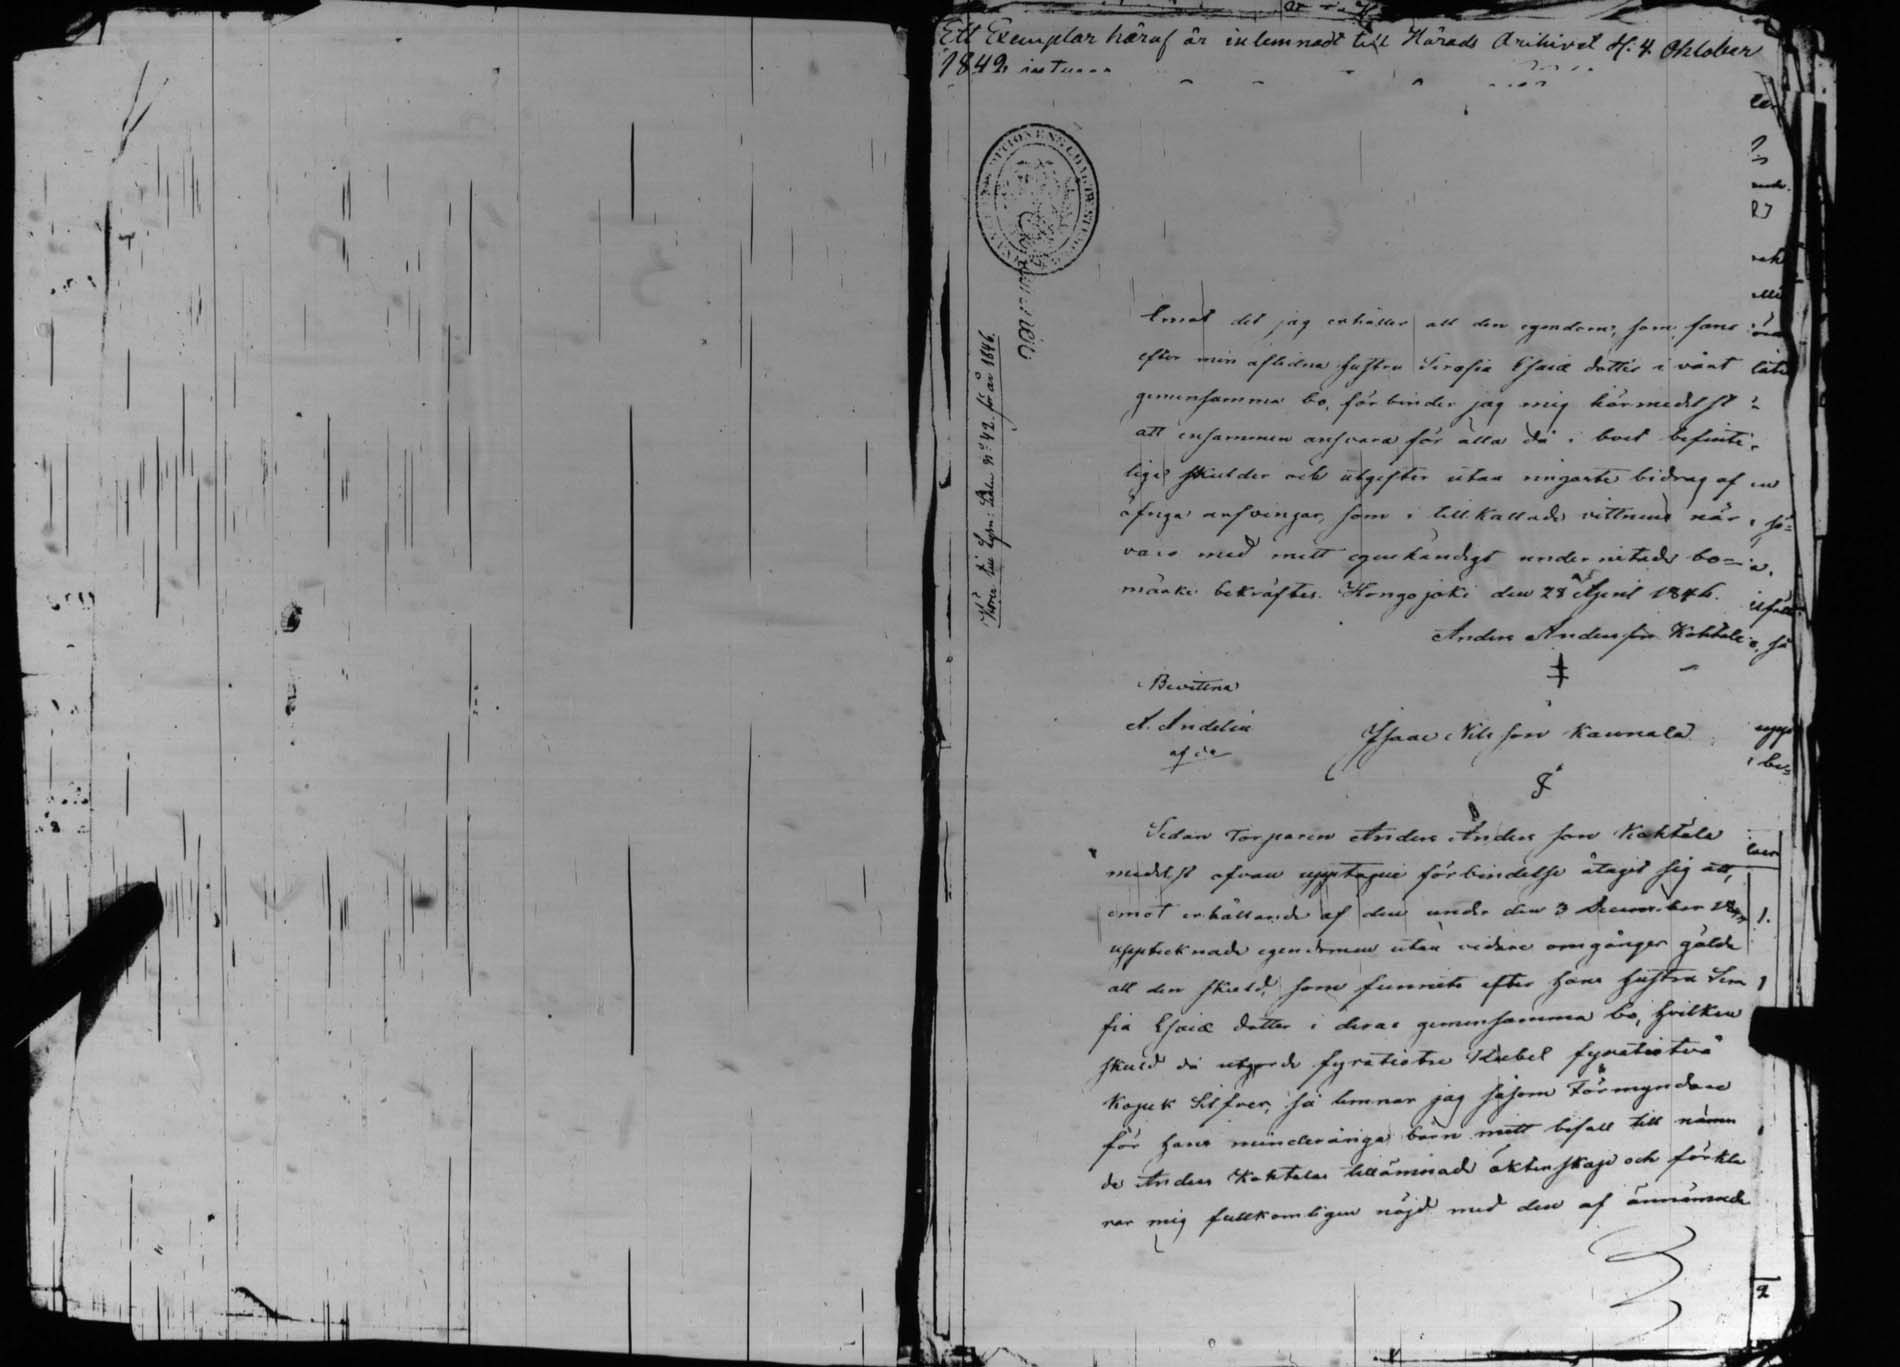 Ett Exemplar häraf är inlemnadt till Härads Arkivet d. 4 Oktober
1842
Hörer till Lysn: Sedeln No 42. för år 1846.
Emot det jag erhåller all den egendom, som fans
efter min aflidna hustru Serafia Esaiæ dotter i vårt
gemensamma bo, förbinder jag mig härmedelst
att ensammen ansvara för alla då i boet befint-
lige skulder och utgifter utan ringaste bidrag af
öfriga arfvingar, som i tillkallade vittnens när
varo med mitt egenhändigt underritade bo-
märke bekräftes. Kongojoki den 28 April 1846.
Anders Andersson Kohtala
Bevittna
A. Andelin
Isaac Nilsson Kaunala
Sedan Torparen Anders Andersson Kohtala
medelst ofvan upptagne förbindelse åtagit sig att,
emot erhållande af den under den 3 December
upptecknade egendomen utan vidare omgånger gälda
all den skuld, som funnits efter hans hustru Sera
fia Esaiæ dotter i deras gemensamma bo, hvilken
skuld då utgorde fyratiotre Rubel fyratiotvå
Kopek Silfver, så lemnar jag såsom Förmyndare
för hans minderåriga barn mitt bifall till nämn
de Anders Kohtalas tillämnade äktenskap och förkla
rar mig fullkomligen nöjd med den af